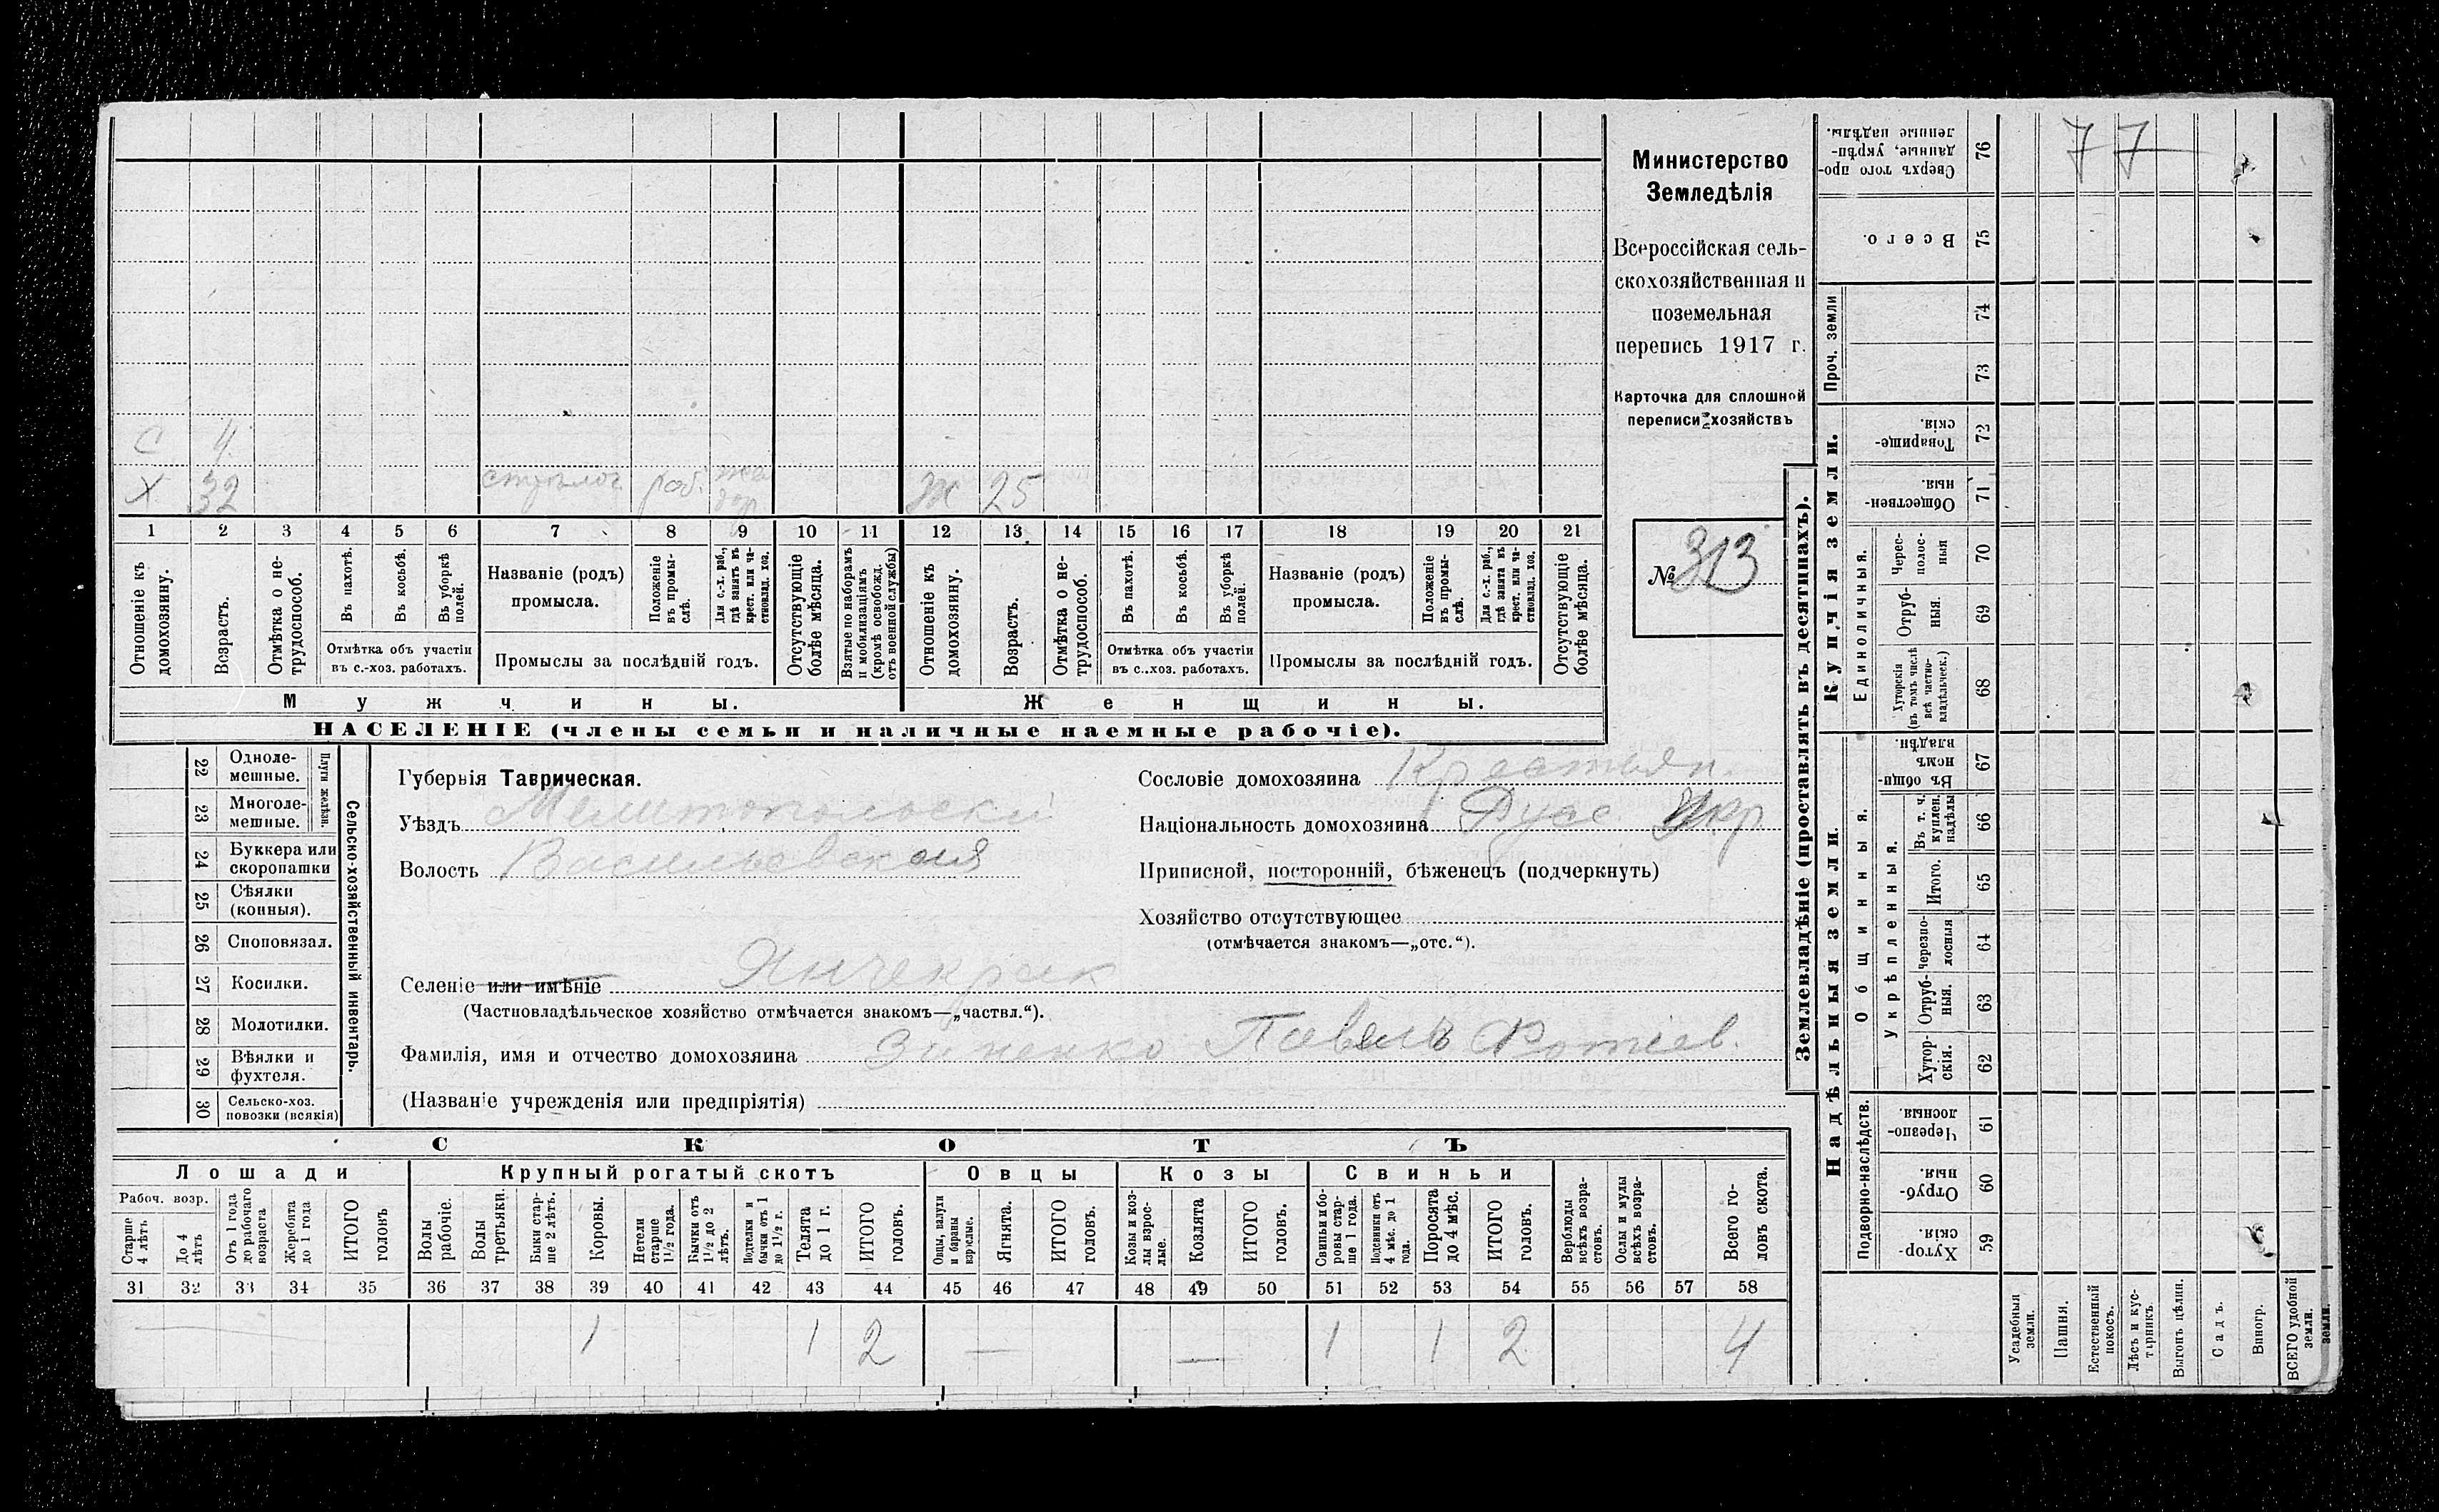 С 4
Х 32 раб. Ж 25
1 2 3 4 5 6 7 8 9 10 11 12 13 14 15 16 17 18 19 20 21
Отношеніе къ домохозяину.
Возрастъ.
Отмѣтка о нетрудоспособ.
Въ пахотѣ.
Въ косьбѣ.
Въ уборкѣ полей.
Отмѣтка объ участіи
въ с.-хоз. работахъ.
Названіе (родъ)
промысла.
Положеніе въ промы-
слѣ.
Для с.-х. раб.,
гдѣ занятъ въ
крест. или ча-
стновлад. хоз.
Промыслы за послѣдній годъ.
Отсутствующіе
болѣе мѣсяца.
Взятые по наборамъ
и мобилизаціямъ
(кромѣ освобожд.
отъ военной службы)
Отношеніе къ
домохозяину.
Возрастъ.
Отмѣтка о не-
трудоспособ.
Въ пахотѣ.
Въ косьбѣ.
Въ уборкѣ
полей.
Отмѣтка объ участіи
въ с..хоз. работахъ.
Названіе (родъ)
промысла.
Положеніе
въ промы-
слѣ.
Для с.-х. раб.,
гдѣ занята въ
крест. или ча-
стновлад. хоз.
Промыслы за послѣдній годъ.
Отсутствующіе
болѣе мѣсяца.
Мужчины. Женщины.
НАСЕЛЕНІЕ (члены семьи и наличные наемные рабочіе).
Министерство
Земледѣлія
Всероссійская сель-
скохозяйственная и
поземельная
перепись 1917 г.
Карточка для сплошной
переписи хозяйствъ
№ 313
22 Одноле-
мешные.
23 Многоле-
мешные.
Плуги желѣзн.
24 Буккера или
скоропашки
25 Сѣялки
(конныя).
26 Споповязал.
27 Косилки.
28 Молотилки.
29 Вѣялки и
фухтеля.
30 Сельско-хоз.
повозки (всякія)
Сельско-хозяйственный инвентарь.
Губернія Таврическая.
Уѣздъ Мелитопольскій
Волость Васильевская
Селеніе или имѣніе Янчекрак
(Частновладѣльческое хозяйство отмѣчается знакомъ—„частвл.“).
Фамилія, имя и отчество домохозяина Зиненко Павелъ Фотіев.
(Названіе учрежденія или предпріятія)
Сословіе домохозяина Крестьян.
Національность домохозяина Русс Укр
Приписной, посторонній, бѣженецъ (подчеркнуть)
Хозяйство отсутствующее
(отмѣчается знакомъ—„отс.“).
СКОТЪ
Лошади Крупный рогатый скотъ Овцы Козы Свиньи
Рабоч. возр.
Старше
4 лѣтъ
До 4
лѣтъ
Отъ 1 года
до рабочаго
возраста
Жеребята
до 1 года
ИТОГО
головъ
Волы
рабочіе.
Волы
третьяки.
Быки стар-
ше 2 лѣтъ.
Коровы.
Нетели
старше
1½ года.
Бычки отъ
1½ до 2
лѣтъ.
Подтелки и
бычки отъ 1
до 1½ г.
Телята
до 1 г.
ИТОГО
головъ.
Овцы, валухи
и бараны
взрослые.
Ягнята.
ИТОГО
головъ.
Козы и коз-
лы взрос-
лые.
Козлята
ИТОГО
головъ.
Свиньи и бо-
ровы стар-
ше 1 года.
Подсвинки отъ
4 мѣс. до 1
года.
Поросята
до 4 мѣс.
ИТОГО
головъ.
Верблюды
всѣхъ возра-
стовъ.
Ослы и мулы
всѣхъ возра-
стовъ.
Всего го-
ловъ скота.
31 32 33 34 35 36 37 38 39 40 41 42 43 44 45 46 47 48 49 50 51 52 53 54 55 56 57 58
— 1 1 2 — — 1 1 2 4
Землевладѣніе (проставлять въ десятинахъ).
Сверхъ того про-
данные, укрѣп-
ленные надѣлы.
76
77
Всего.
75
Проч. земли
74
73
Купчія земли.
Товарище-
скія.
72
Обществен-
ныя.
71
Единоличныя.
Черес-
полос-
ныя
70
Отруб-
ныя.
69
Хуторскія
(въ томъ числѣ
всѣ частно-
владѣльческ.)
68
Надѣльныя земли.
Общинныя.
Въ общи-
номъ
владѣн.
67
Укрѣпленныя.
Въ т. ч.
куплен.
надѣлы
66
Итого.
65
Черезпо-
лосныя
64
Отруб-
ныя.
63
Хутор-
скія.
62
Подворно-наслѣдств.
Черезпо-
лосныя.
61
Отруб-
ныя.
60
Хутор-
скія.
59
Усадебныя
земли.
Пашня.
Естественный
покосъ.
Лѣсъ и кус-
тарникъ.
Выгонъ цѣлин.
Садъ.
Виногр.
ВСЕГО удобной
земли.